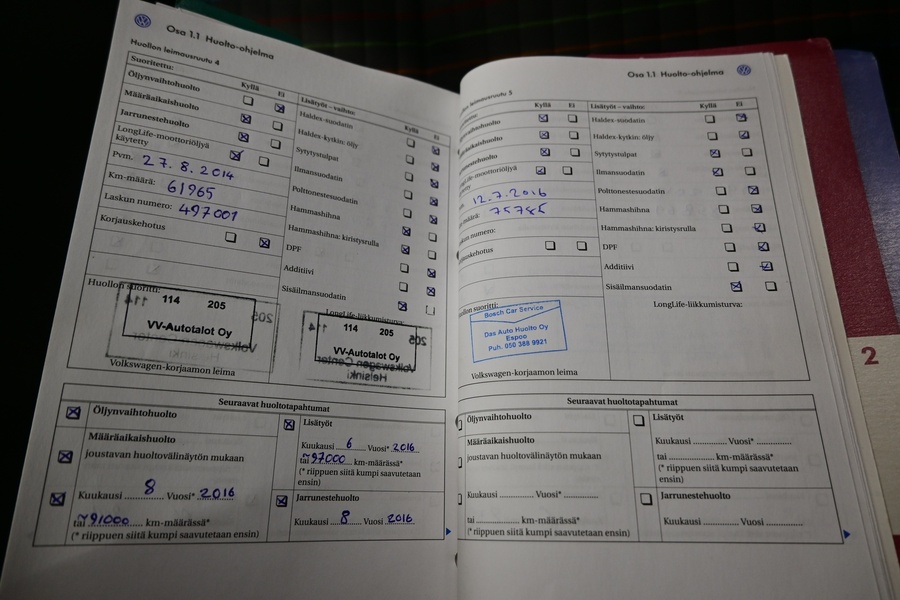 Osa 1.1 Huolto-ohjelma
Huollon leimausruutu 4
Suoritettu: Kyllä Ei
Öljynvaihtohuolto
Määräaikaishuolto
Jarrunestehuolto
LongLife-moottoriöljyä
käytetty
Pvm. 27.8.2014
Km-määrä: 61965
Laskun numero: 497001
Korjauskehotus
Huollon suoritti:
114 205
VV-Autotalot Oy
Volkswagen-korjaamon leima
Lisätyöt – vaihto: Kyllä Ei
Haldex-suodatin
Haldex-kytkin: öljy
Sytytystulpat
Ilmansuodatin
Polttonestesuodatin
Hammashihna
Hammashihna: kiristysrulla
DPF
Additiivi
Sisäilmansuodatin
LongLife-liikkumisturva:
114 205
VV-Autotalot Oy
Volkswagen Center
Helsinki
Seuraavat huoltotapahtumat
Öljynvaihtohuolto
Määräaikaishuolto
joustavan huoltovälinäytön mukaan
Kuukausi 8 Vuosi* 2016
tai ~91000 km-määrässä*
(* riippuen siitä kumpi saavutetaan ensin)
Lisätyöt
Kuukausi 6 Vuosi* 2016
tai ~97000 km-määrässä*
(* riippuen siitä kumpi saavutetaan
ensin)
Jarrunestehuolto
Kuukausi 8 Vuosi 2016
Osa 1.1 Huolto-ohjelma
leimausruutu 5
Kyllä Ei
12.7.2016
75785
numero:
Bosch Car Service
Das Auto Huolto Oy
Espoo
Puh. 050 388 9921
Volkswagen-korjaamon leima
Lisätyöt – vaihto: Kyllä Ei
Haldex-suodatin
Haldex-kytkin: öljy
Sytytystulpat
Ilmansuodatin
Polttonestesuodatin
Hammashihna
Hammashihna: kiristysrulla
DPF
Additiivi
Sisäilmansuodatin
LongLife-liikkumisturva:
Seuraavat huoltotapahtumat
Öljynvaihtohuolto
Määräaikaishuolto
joustavan huoltovälinäytön mukaan
Kuukausi Vuosi*
tai km-määrässä*
(* riippuen siitä kumpi saavutetaan ensin)
Lisätyöt
Kuukausi Vuosi*
tai km-määrässä*
(* riippuen siitä kumpi saavutetaan
ensin)
Jarrunestehuolto
Kuukausi Vuosi
2